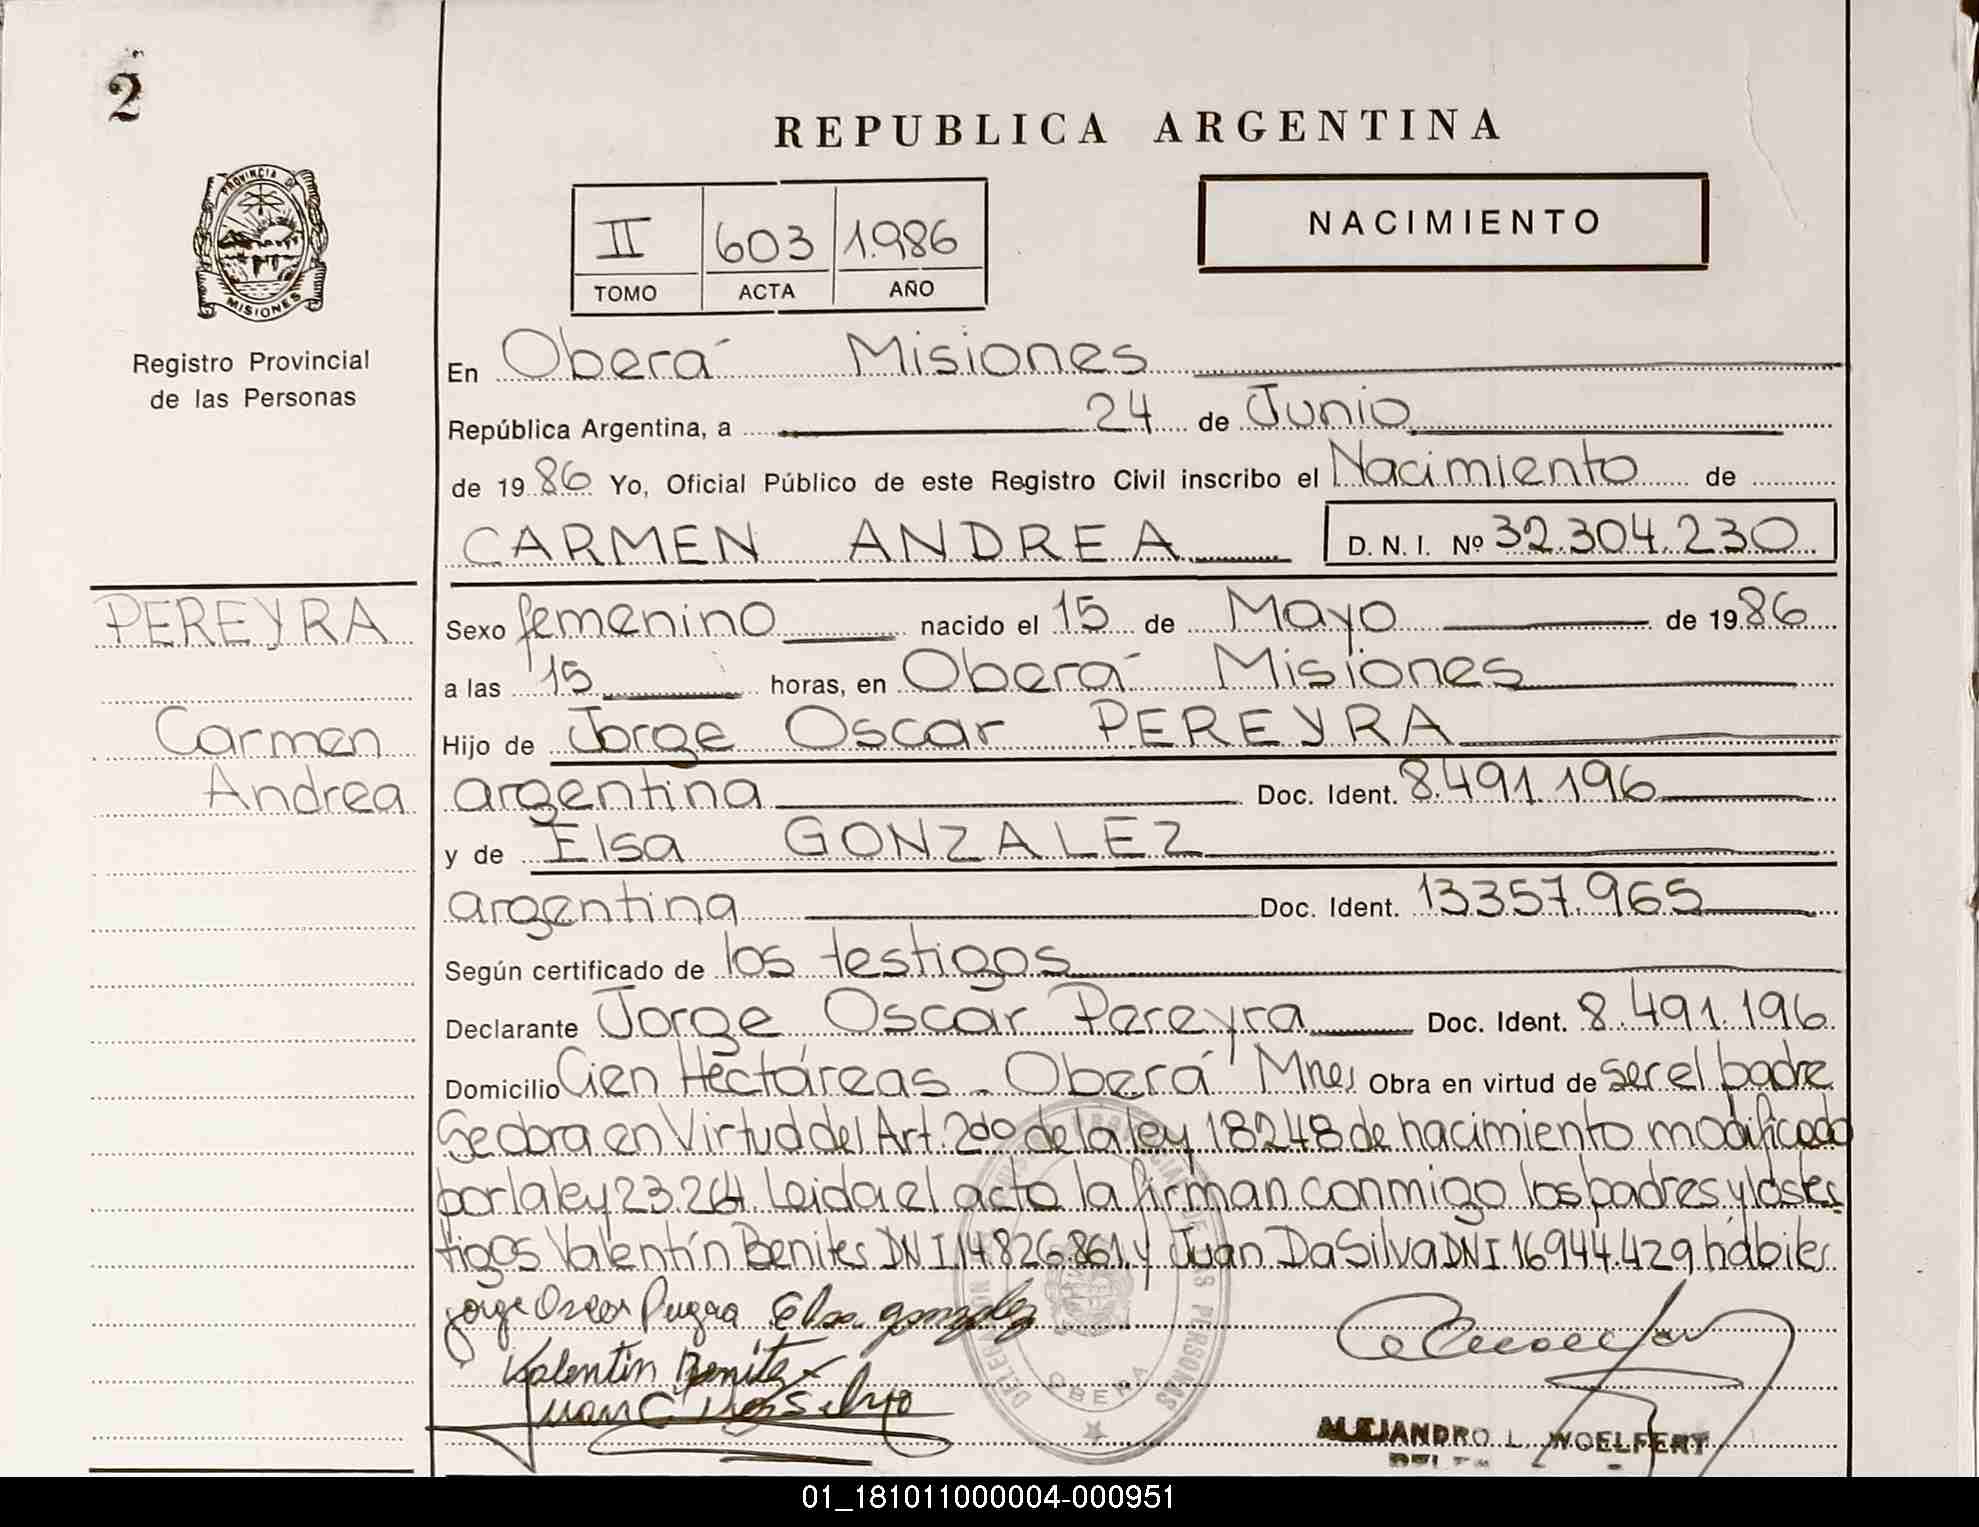 2
REPUBLICA ARGENTINA
NACIMIENTO
II 603 1.986
TOMO ACTA AÑO
PROVINCIA DE
MISIONES
Registro Provincial
de las Personas
En Oberá Misiones
República Argentina, a 24 de Junio
de 1986 Yo, Oficial Público de este Registro Civil inscribo el Nacimiento de
CARMEN ANDREA D. N. I. Nº 32.304.230
PEREYRA
Carmen
Andrea
Sexo femenino nacido el 15 de Mayo de 1986
a las 15 horas, en Oberá Misiones
Hijo de Jorge Oscar PEREYRA
argentina Doc. Ident. 8.491.196
y de Elsa GONZALEZ
argentina Doc. Ident. 13.357.965
Según certificado de los testigos
Declarante Jorge Oscar Pereyra Doc. Ident. 8.491.196
Domicilio Cien Hectáreas - Oberá Mnes Obra en virtud de ser el padre
en Virtud del Art. 2do de la ley 18248 de nacimiento modificado
por la ley 23.264 Leida el acta la firman conmigo los padres y los tes
tigos Valentín Benites DNI 14.826.861 y Juan Da Silva DNI 16.944.429 hábiles
Jorge Oscar Elsa gonzalez
Valentin Benitez
Juan C
OBERA
ALEJANDRO L. WOELFERT
01_181011000004-000951